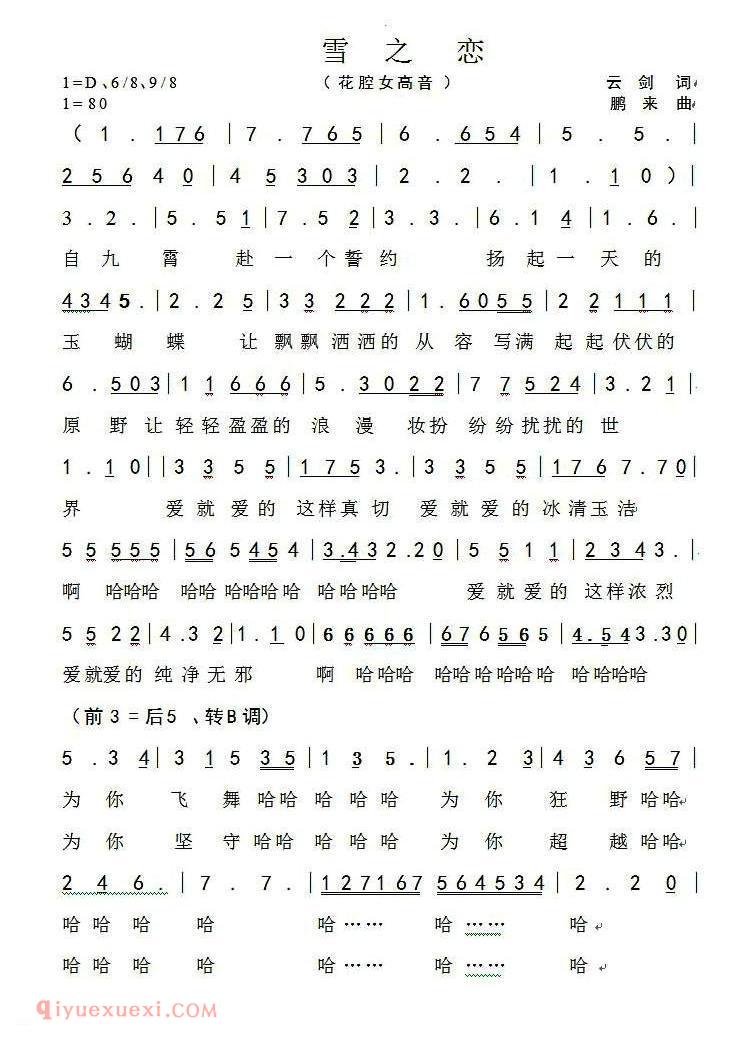 雪 之 恋
1=D、6/8、9/8 （花腔女高音） 云 剑 词
1=80 鹏 来 曲
（1 . 176 | 7 . 765 | 6 . 654 | 5 . 5 . |
2564 0 | 4 5 303 | 2 . 2 . | 1 . 10）|
3 . 2 . | 5 . 51 | 7 . 5 2 | 3 . 3 . | 6 . 1 4 | 1 . 6 . |
自 九 霄 赴 一 个 誓 约 扬 起 一 天 的
4345. | 2 . 2 5 | 3 3 222 | 1 . 6055 | 2 2 111 |
玉 蝴 蝶 让 飘飘 洒洒的 从 容 写满 起 起伏伏的
6 . 503 | 1 1 666 | 5 . 3022 | 7 7 524 | 3 . 2 1 |
原 野 让 轻轻盈盈的 浪 漫 妆扮 纷纷扰扰的 世
1 . 10 | | 3 3 5 5 | 175 3 . | 3 3 5 5 | 176 7 . 70 |
界 爱 就 爱 的 这样真 切 爱 就 爱 的 冰清玉洁
5 5 555 | 56 454 | 3.432.20 | 5 5 1 1 | 2343. |
啊 哈哈哈 哈哈 哈哈哈哈 哈哈哈哈 爱 就 爱 的 这样浓烈
5 5 22 | 4 . 3 2 | 1 . 10 | 66666 | 676565 | 4.543.30 |
爱就爱的 纯净无邪 啊 哈哈哈 哈哈哈哈哈哈 哈哈哈哈
（前 3 = 后5 、转B 调）
5 . 3 4 | 3 1 5 35 | 1 3 5 . | 1 . 2 3 | 4 3 6 57 |
为 你 飞 舞 哈哈 哈 哈哈 为 你 狂 野 哈哈
为 你 坚 守 哈哈 哈 哈哈 为 你 超 越 哈哈
2 4 6 . | 7 . 7 . | 127167 564534 | 2 . 2 0 |
哈 哈 哈 哈 哈 …… 哈 …… 哈
哈 哈 哈 哈 哈 …… 哈 …… 哈
qiyuexuexi.com